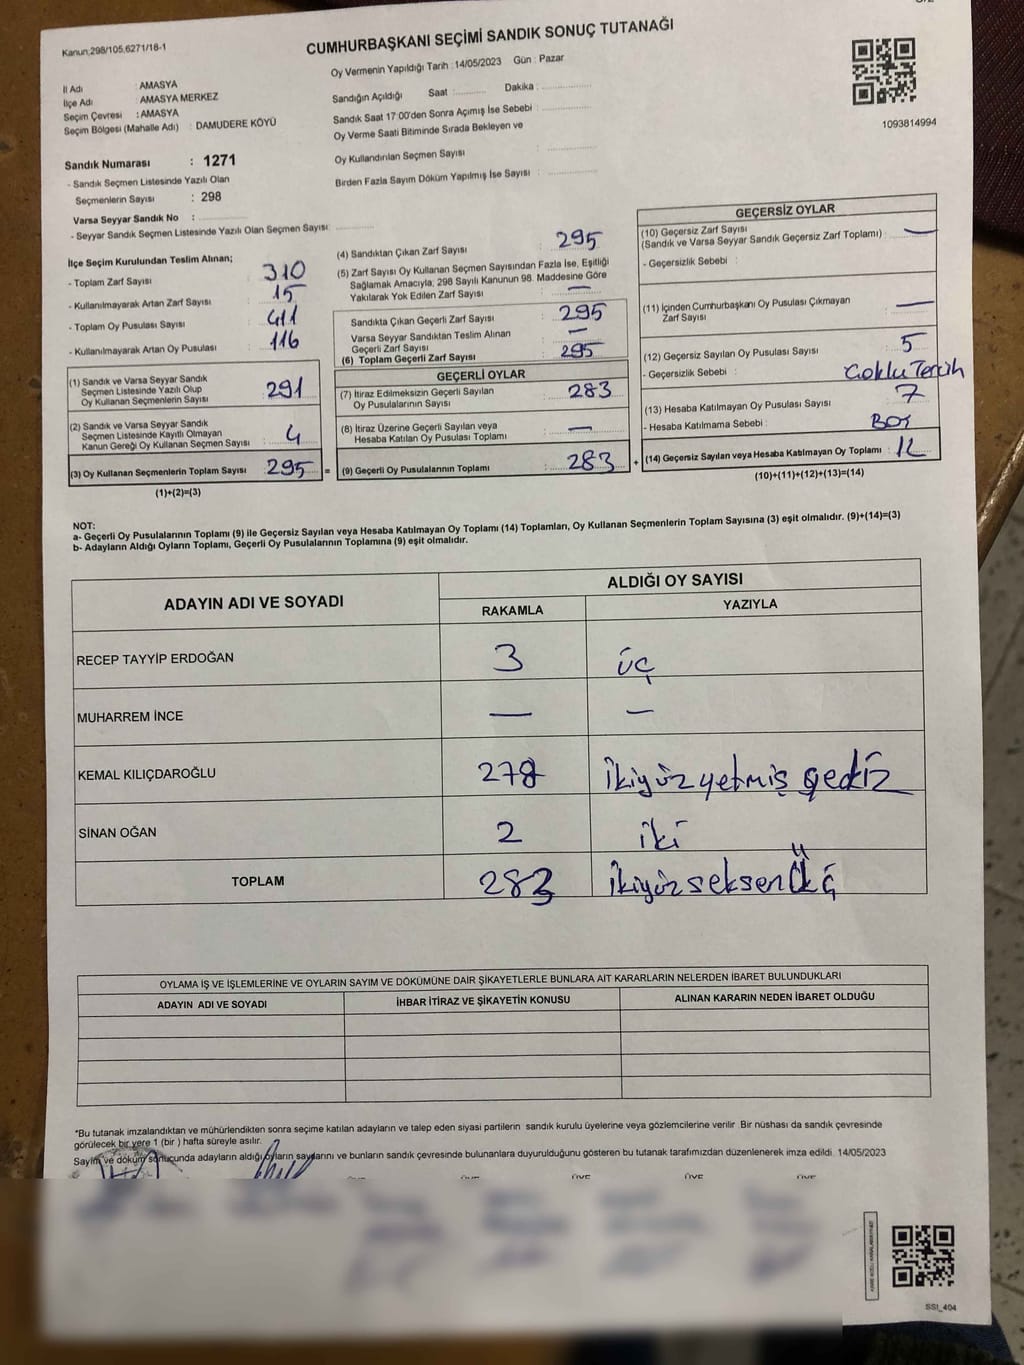 Kanun:298/105,6271/18-1
CUMHURBAŞKANI SEÇİMİ SANDIK SONUÇ TUTANAĞI
Oy Vermenin Yapıldığı Tarih : 14/05/2023 Gün : Pazar
1093814994
İl Adı : AMASYA
İlçe Adı : AMASYA MERKEZ
Seçim Çevresi : AMASYA
Seçim Bölgesi (Mahalle Adı) : DAMUDERE KÖYÜ
Sandık Numarası : 1271
- Sandık Seçmen Listesinde Yazılı Olan
Seçmenlerin Sayısı : 298
Varsa Seyyar Sandık No :
- Seyyar Sandık Seçmen Listesinde Yazılı Olan Seçmen Sayısı:
Sandığın Açıldığı Saat : Dakika :
Sandık Saat 17:00'den Sonra Açımış İse Sebebi :
Oy Verme Saati Bitiminde Sırada Bekleyen ve
Oy Kullandırılan Seçmen Sayısı :
Birden Fazla Sayım Döküm Yapılmış İse Sayısı :
İlçe Seçim Kurulundan Teslim Alınan;
- Toplam Zarf Sayısı : 310
- Kullanılmayarak Artan Zarf Sayısı : 15
- Toplam Oy Pusulası Sayısı : 411
- Kullanılmayarak Artan Oy Pusulası : 116
(1) Sandık ve Varsa Seyyar Sandık
Seçmen Listesinde Yazılı Olup
Oy Kullanan Seçmenlerin Sayısı : 291
(2) Sandık ve Varsa Seyyar Sandık
Seçmen Listesinde Kayıtlı Olmayan
Kanun Gereği Oy Kullanan Seçmen Sayısı : 4
(3) Oy Kullanan Seçmenlerin Toplam Sayısı : 295 =
(1)+(2)=(3)
(4) Sandıktan Çıkan Zarf Sayısı : 295
(5) Zarf Sayısı Oy Kullanan Seçmen Sayısından Fazla İse, Eşitliği
Sağlamak Amacıyla, 298 Sayılı Kanunun 98. Maddesine Göre
Yakılarak Yok Edilen Zarf Sayısı : —
Sandıkta Çıkan Geçerli Zarf Sayısı : 295
Varsa Seyyar Sandıktan Teslim Alınan
Geçerli Zarf Sayısı : —
(6) Toplam Geçerli Zarf Sayısı : 295
GEÇERLİ OYLAR
(7) İtiraz Edilmeksizin Geçerli Sayılan
Oy Pusulalarının Sayısı : 283
(8) İtiraz Üzerine Geçerli Sayılan veya
Hesaba Katılan Oy Pusulası Toplamı : —
(9) Geçerli Oy Pusulalarının Toplamı : 283 +
GEÇERSİZ OYLAR
(10) Geçersiz Zarf Sayısı
(Sandık ve Varsa Seyyar Sandık Geçersiz Zarf Toplamı) : —
- Geçersizlik Sebebi :
(11) İçinden Cumhurbaşkanı Oy Pusulası Çıkmayan
Zarf Sayısı : —
(12) Geçersiz Sayılan Oy Pusulası Sayısı : 5
- Geçersizlik Sebebi : Çoklu Tercih
(13) Hesaba Katılmayan Oy Pusulası Sayısı : 7
- Hesaba Katılmama Sebebi : BOŞ
(14) Geçersiz Sayılan veya Hesaba Katılmayan Oy Toplamı : 12
(10)+(11)+(12)+(13)=(14)
NOT:
a- Geçerli Oy Pusulalarının Toplamı (9) ile Geçersiz Sayılan veya Hesaba Katılmayan Oy Toplamı (14) Toplamları, Oy Kullanan Seçmenlerin Toplam Sayısına (3) eşit olmalıdır. (9)+(14)=(3)
b- Adayların Aldığı Oyların Toplamı, Geçerli Oy Pusulalarının Toplamına (9) eşit olmalıdır.
ADAYIN ADI VE SOYADI
ALDIĞI OY SAYISI
RAKAMLA YAZIYLA
RECEP TAYYİP ERDOĞAN 3 üç
MUHARREM İNCE — —
KEMAL KILIÇDAROĞLU 278 ikiyüzyetmiş
SİNAN OĞAN 2 iki
TOPLAM 283 ikiyüzseksen
OYLAMA İŞ VE İŞLEMLERİNE VE OYLARIN SAYIM VE DÖKÜMÜNE DAİR ŞİKAYETLERLE BUNLARA AİT KARARLARIN NELERDEN İBARET BULUNDUKLARI
ADAYIN ADI VE SOYADI İHBAR İTİRAZ VE ŞİKAYETİN KONUSU ALINAN KARARIN NEDEN İBARET OLDUĞU
*Bu tutanak imzalandıktan ve mühürlendikten sonra seçime katılan adayların ve talep eden siyasi partilerin sandık kurulu üyelerine veya gözlemcilerine verilir Bir nüshası da sandık çevresinde
görülecek bir yere 1 (bir ) hafta süreyle asılır.
Sayım ve döküm sonucunda adayların aldığı oyların sayılarını ve bunların sandık çevresinde bulunanlara duyurulduğunu gösteren bu tutanak tarafımızdan düzenlenerek imza edildi. 14/05/2023
SSI_404